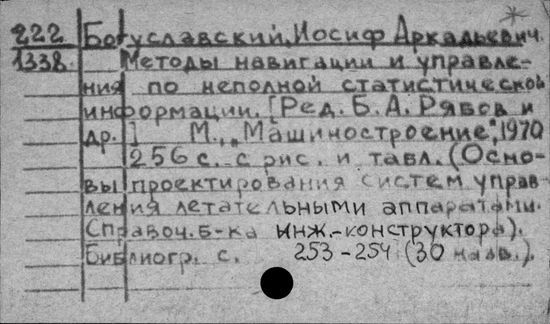 222 Богуславский, Иосиф Аркадьевич.
1338. Методы навигации и управле-
ния по неполной статистической
информации. [Ред. Б. А. Рябов и
др.] М., „Машиностроение", 1970
256 с. с рис. и табл. (Осно-
вы проектирования систем управ-
ления летательными аппаратами.
Справоч. б-ка инж.-конструктора).
Библиогр. с. 253-254 (30 назв.).